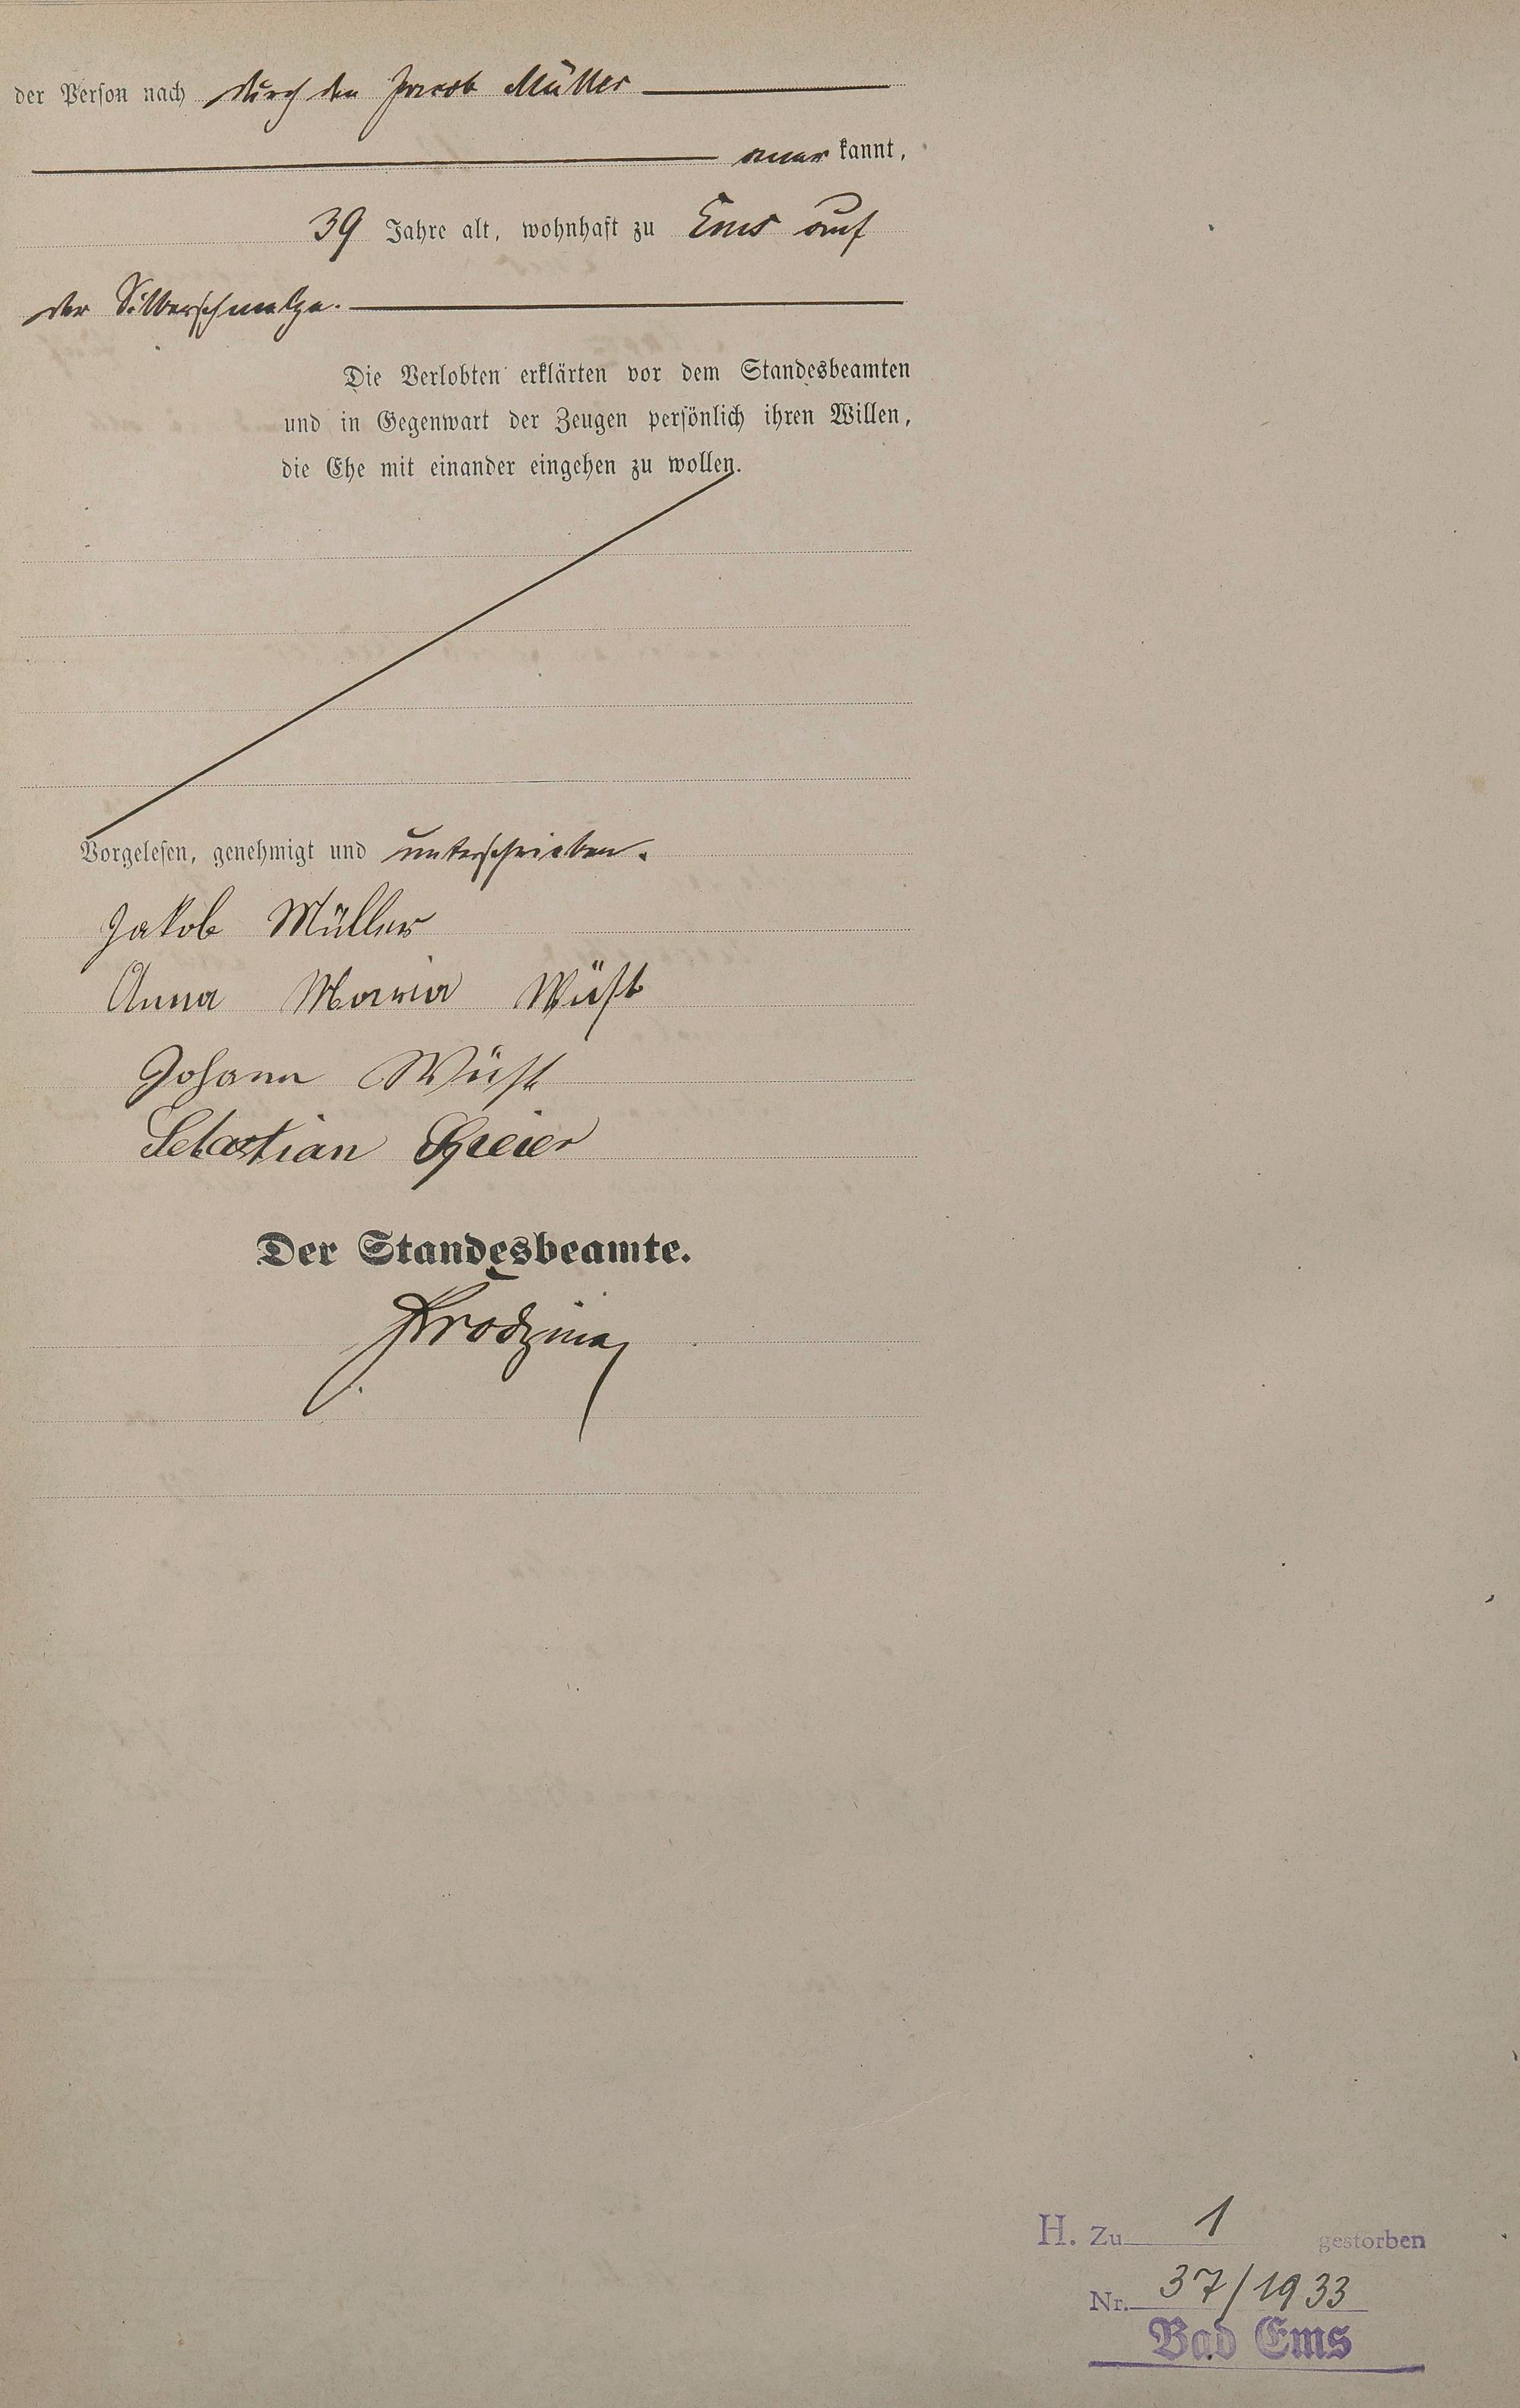 der Person nach durch den Jacob Müller
aner kannt,
39 Jahre alt, wohnhaft zu Ems auf
der Silberschmelze.
Die Verlobten erklärten vor dem Standesbeamten
und in Gegenwart der Zeugen persönlich ihren Willen,
die Ehe mit einander eingehen zu wollen.
Vorgelesen, genehmigt und unterschrieben.
Jakob Müller
Anna Maria Wüst
Johann Wüst
Sebastian Speier
Der Standesbeamte.
H. Zu 1 gestorben
Nr. 37/1933
Bad Ems